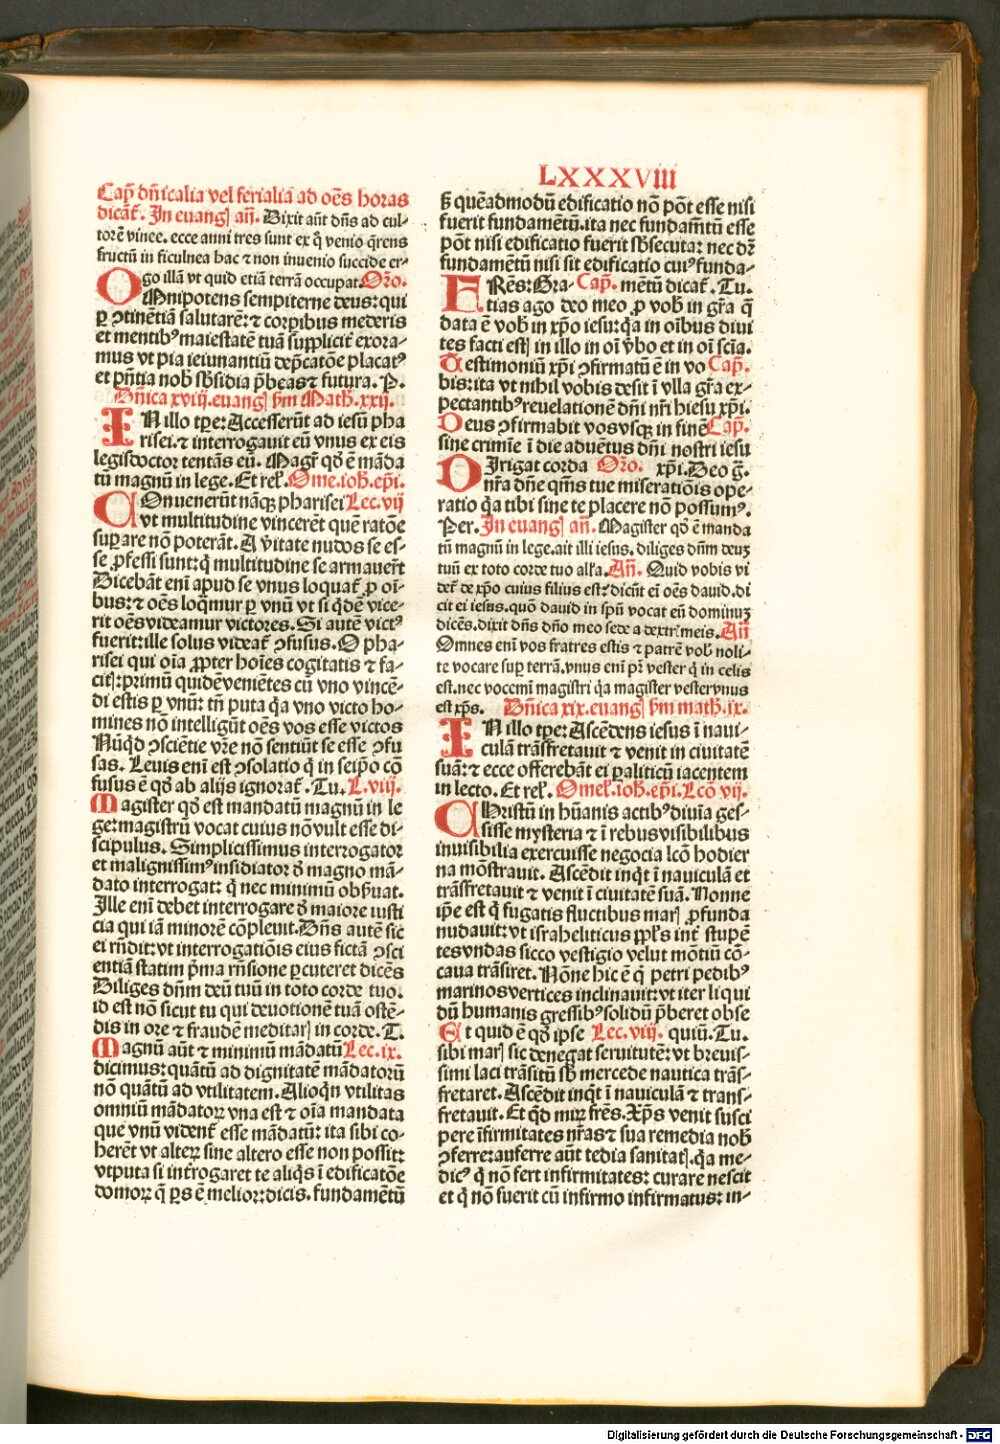 LXXXVIII
Cap̄. dn̄icalia vel ferialia ad oēs horas
dicāt̄. In euangꝭ an̄. Dixit aūt dn̄s ad cul-
torē vinee. ecce anni tres sunt ex q̊ venio q̄rens
fructū in ficulnea hac ⁊ non inuenio succide er-
go illā vt quid etiā terrā occupat. Or̄o.
OMnipotens sempiterne deus: qui
ꝑ ꝯtinētiā salutarē: ⁊ corꝑibus mederis
et mentibꝰ maiestatē tuā suppliciť exora-
mus vt pia ieiunantiū dep̄catōe placatꝰ
et p̄ntia nob̄ sb̄sidia p̄beas ⁊ futura. P.
Dn̄ica xviii. euangꝭ ẜm Math̄. xxij.
IN illo tp̄e: Accesserūt ad iesū pha
risei. ⁊ interrogauit eū vnus ex eis
legisdoctor tentās eū. Magr̄ qd̄ ē māda
tū magnū in lege. Et rel̄. Ome. ioh̄. ep̄i.
COnuenerūt nāqꝫ pharisei Lec. vij
vt multitudine vincerēt quē ratōe
suꝑare nō poterāt. A v̄itate nudos se es-
se ꝓfessi sunt: q̇ multitudine se armauer̄t
Dicebāt enī apud se vnus loquať ꝓ oī-
bus: ⁊ oēs loq̄mur ꝑ vnū vt si qd̄ē vice-
rit oēs videamur victores. Si autē victꝰ
fuerit: ille solus videať ꝯfusus. O pha-
risei qui oīa ꝓpter hoīes cogitatis ⁊ fa-
citꝭ: primū quidē veniētes cū vno vincē-
di estis ꝑ vnū: tn̄ puta q̇a vno victo ho-
mines nō intelligūt oēs vos esse victos
Nūq̇d ꝯsciētie vr̄e nō sentiūt se esse ꝯfu
sas. Leuis enī est ꝯsolatio q̇ in seip̄o cō
fusus ē qd̄ ab alijs ignorať. Tu. L. viii.
Magister qd̄ est mandatū magnū in le
ge: magistrū vocat cuius nō vult esse di-
scipulus. Simplicissimus interrogator
et malignissimꝰ insidiator ꝺ̄ magno mā-
dato interrogat: q̇ nec minimū obẜuat.
Ille enī debet interrogare ꝺ̄ maiore iusti
cia qui iā minorē cōpleuit. Dn̄s autē sic
ei rn̄dit: vt interrogatiōis eius fictā ꝯsci
entiā statim p̄ma rn̄sione ꝑcuteret dicēs
Diliges dn̄m deū tuū in toto corde tuo.
id est nō sicut tu qui deuotionē tuā ostē-
dis in ore ⁊ fraudē meditarꝭ in corde. T.
Magnū aūt ⁊ minimū mādatū Lec. ix.
dicimus: quātū ad dignitatē mādatorū
nō quātū ad vtilitatem. Alioq̇n vtilitas
omniū mādatoꝝ vna est ⁊ oīa mandata
que vnū videnť esse mādatū: ita sibi co-
herēt vt alteꝝ sine altero esse non possit:
vtputa si int̄rogaret te aliq̇s ī edificatōe
domoꝝ q̄ ꝑs ē melior: dicis. fundamētū
ẜ quēadmodū edificatio nō pōt esse nisi
fuerit fundamētū. ita nec fundam̄tū esse
pōt nisi edificatio fuerit sb̄secuta: nec dꝝ̄
fundamētū nisi sit edificatio cuiꝰ funda-
FRēs: Gra- Cap̄. mētū dicať. Tu.
tias ago deo meo ꝓ vob̄ in gr̄a q̄
data ē vob̄ in xp̄o iesu: q̇a in oībus diui
tes facti estꝭ in illo in oī v̄bo et in oī scīa.
Testimoniū xp̄i ꝯfirmatū ē in vo Cap̄.
bis: ita vt nihil vobis desit ī vlla gr̄a ex-
pectantibꝰ reuelationē dn̄i nr̄i hiesu xp̄i.
Deus ꝯfirmabit vos vsqꝫ in finē Cap̄.
sine crimīe ī die aduētus dn̄i nostri iesu
DIrigat corda Or̄o. xp̄i. Deo g̅.
nr̄a dn̄e qm̄s tue miseratiōis ope-
ratio q̇a tibi sine te placere nō possumꝰ.
Per. In euangꝭ an̄. Magister qd̄ ē manda
tū magnū in lege. ait illi iesus. diliges dn̄m deuꝫ
tuū ex toto corde tuo all'a. An̄. Quid vobis vi
deť de xp̄o cuius filius est? dicūt ei oēs dauid. di
cit ei iesus. quō dauid in sp̄u vocat eū dominuꝫ
dicēs. dixit dn̄s dn̄o meo sede a dextrꝭ meis. An̄
Omnes enī vos fratres estis ⁊ patrē vob̄ noli-
te vocare suꝑ terrā. vnus enī pr̄ vester q̇ in celis
est. nec vocemī magistri q̇a magister vester vnus
est xp̄s. Dn̄ica xix. euangꝭ ẜm math̄. ix.
IN illo tp̄e: Ascēdens iesus ī naui-
culā trāsfretauit ⁊ venit in ciuitatē
suā: ⁊ ecce offerebāt ei ꝑaliticū iacentem
in lecto. Et rel̄. Omel̄. ioh̄. ep̄i. Lcō vij.
CHristū in hūanis actibꝰ diuīa ges-
sisse mysteria ⁊ ī rebus visibilibus
inuisibilia exercuisse negocia lcō hodier
na mōstrauit. Ascēdit inq̇t ī nauiculā et
trāsfretauit ⁊ venit ī ciuitatē suā. Nonne
ip̄e est q̇ fugatis fluctibus marꝭ ꝓfunda
nudauit: vt israheliticus ppl̄s int̄ stupē
tes vndas sicco vestigio velut mōtiū cō-
caua trāsiret. Nōne hic ē q̇ petri pedibꝰ
marinos vertices inclinauit: vt iter liqui
dū humanis gressibꝰ solidū p̄beret obse
Et quid ē qd̄ ipse Lec. viij. quiū. Tu.
sibi marꝭ sic denegat seruitutē: vt breuis-
simi laci trāsitū sb̄ mercede nautica trās-
fretaret. Ascēdit inq̇t ī nauiculā ⁊ trans-
fretauit. Et q̇d miꝝ fr̄es. Xp̄s venit susci
pere īfirmitates nr̄as ⁊ sua remedia nob̄
ꝯferre: auferre aūt tedia sanitatꝭ. q̇a me-
dicꝰ q̇ nō fert infirmitates: curare nescit
et q̇ nō fuerit cū infirmo infirmatus: in-
Digitalisierung gefördert durch die Deutsche Forschungsgemeinschaft - DFG